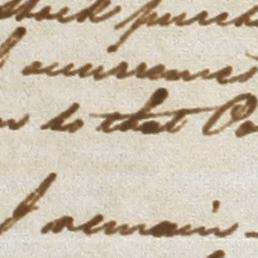 stock purch
f occurrences
to that
I remain